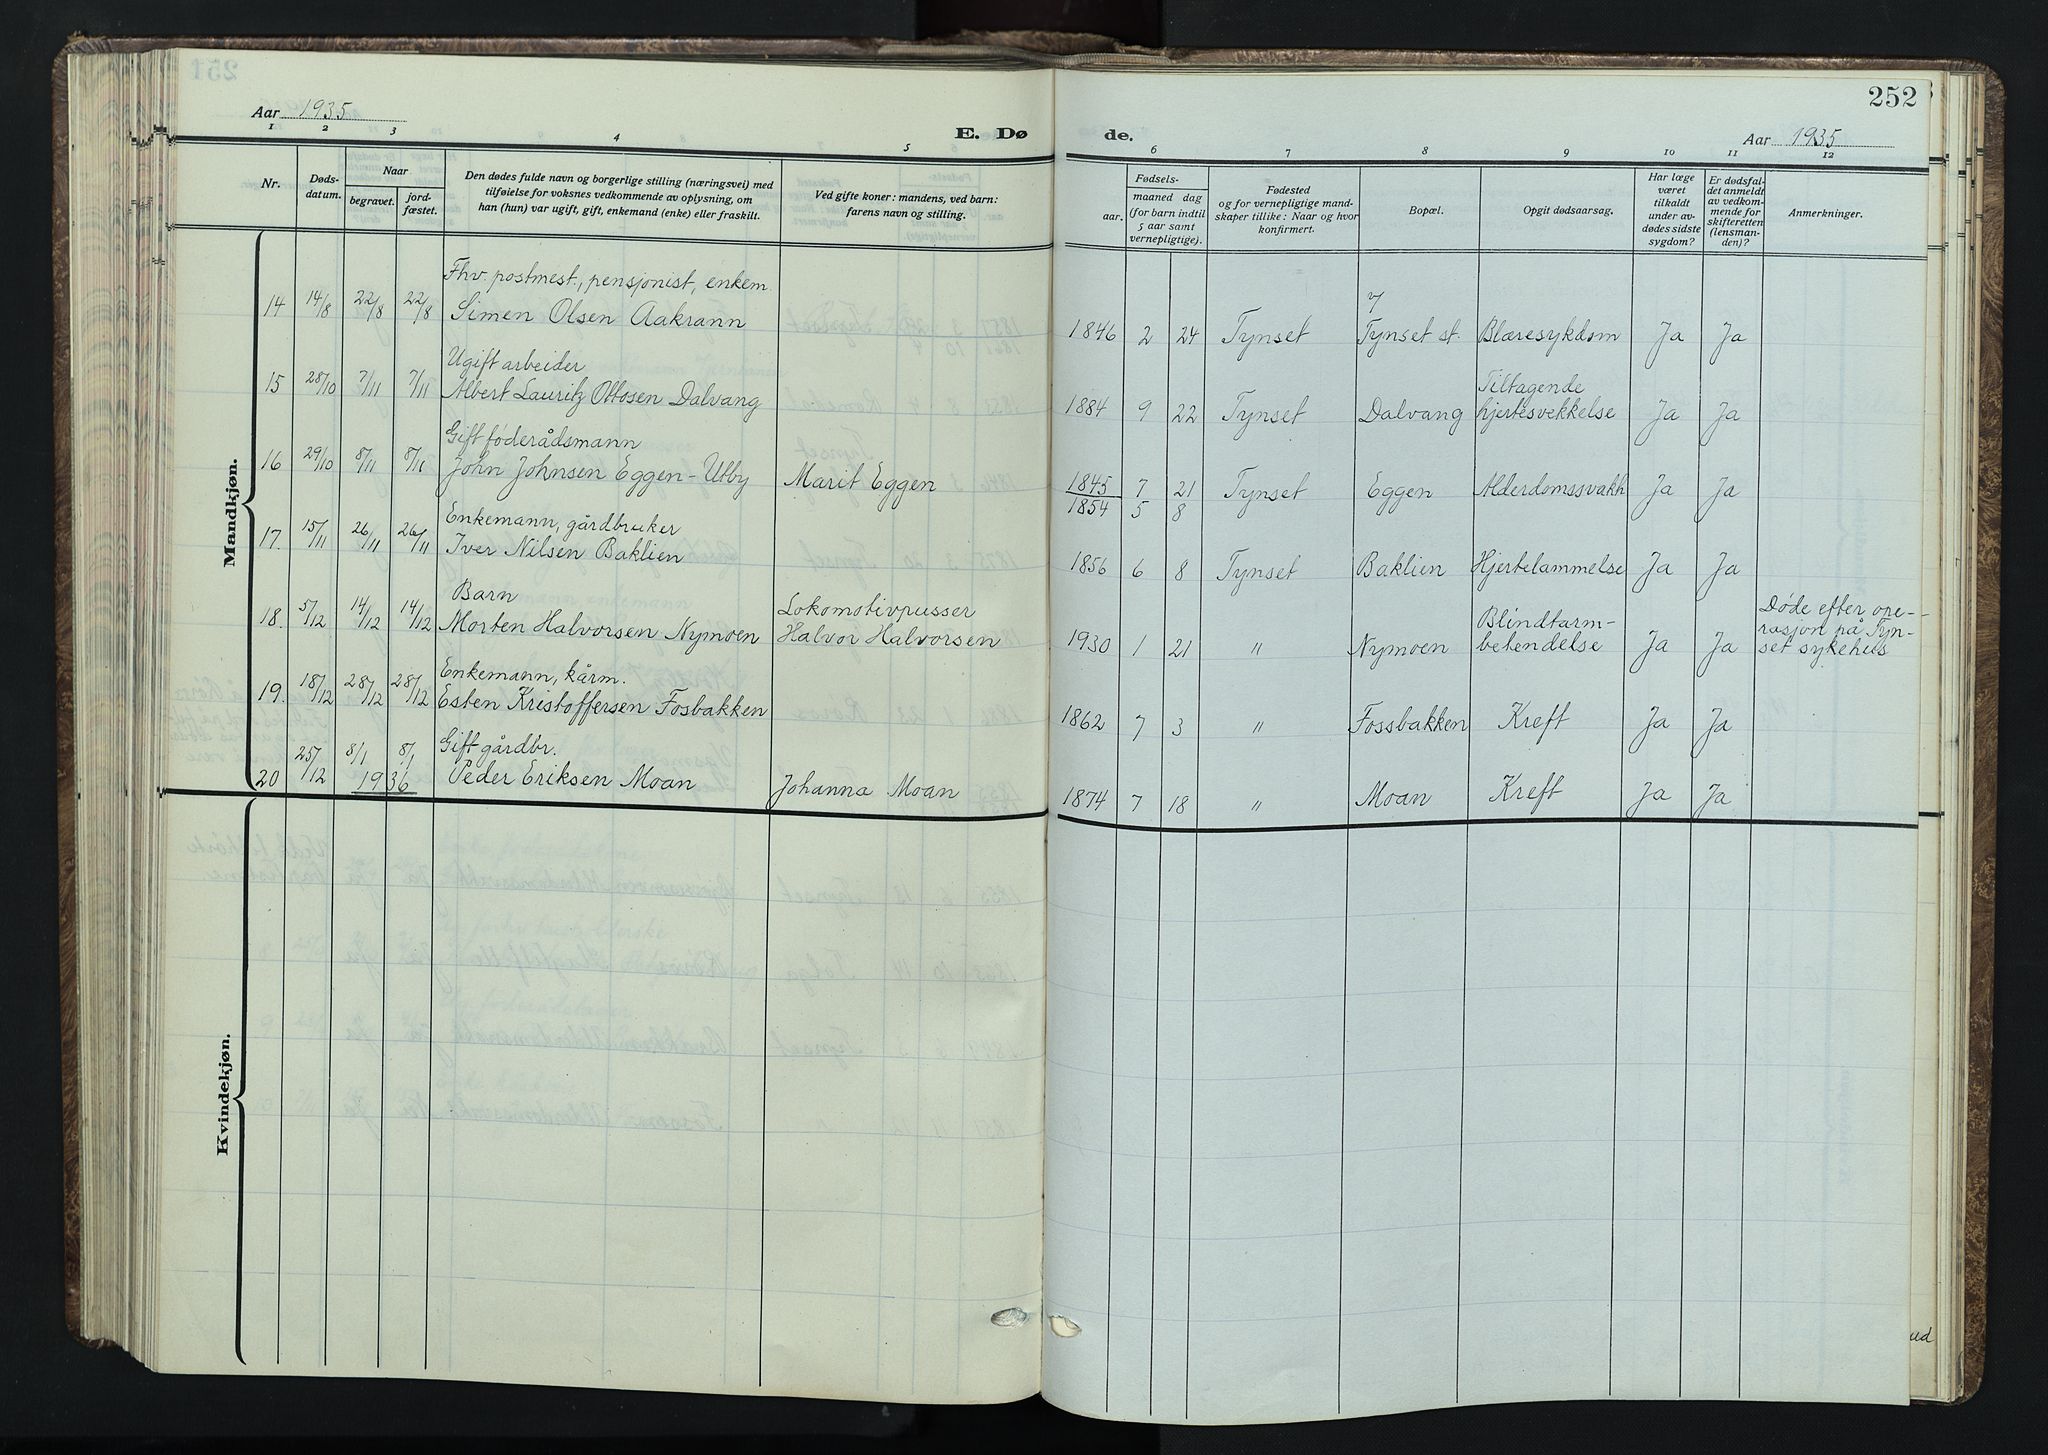 252
Aar 1935
E. Dø
de.
Aar 1935
1 2 3 4 5 6 7 8 9 10 11 12
Nr.
Døds-
datum.
Naar
begravet.
jord-
fæstet.
Den dødes fulde navn og borgerlige stilling (næringsvei) med
tilføielse for voksnes vedkommende av oplysning, om
han (hun) var ugift, gift, enkemand (enke) eller fraskilt.
Ved gifte koner: mandens, ved barn:
farens navn og stilling.
Fødsels-
aar. maaned dag
(for barn indtil
5 aar samt
vernepligtige).
Fødested
og for vernepligtige mand-
skaper tillike: Naar og hvor
konfirmert.
Bopæl.
Opgit dødsaarsag.
Har læge
været
tilkaldt
under av-
dødes sidste
sygdom?
Er dødsfal-
det anmeldt
av vedkom-
mende for
skifteretten
(lensman-
den)?
Anmerkninger.
Mandkjøn.
Fhv. postmest., pensjonist, enkem.
14 14/8 22/8 22/8 Simen Olsen Aakrann 1846 2 24 Tynset Tynset st. Blæresykdom Ja Ja
Ugift arbeider Tiltagende
15 28/10 7/11 7/11 Albert Lauritz Ottosen Dalvang 1884 9 22 Tynset Dalvang hjertesvekkelse Ja Ja
Gift føderådsmann
16 29/10 8/11 8/11 John Johnsen Eggen-Utby Marit Eggen 1845 7 21 Tynset Eggen Alderdomssvakh Ja Ja
1854 5 8
Enkemann, gårdbruker
17. 15/11 26/11 26/11 Iver Nilsen Baklien 1856 6 8 Tynset Baklien Hjertelammelse Ja Ja
Barn Lokomotivpusser Blindtarm- Døde efter ope-
18. 5/12 14/12 14/12 Morten Halvorsen Nymoen Halvor Halvorsen 1930 1 21 " Nymoen betendelse Ja Ja rasjon på Tyn-
set sykehus
Enkemann, kårm.
19. 18/12 28/12 28/12 Esten Kristoffersen Fosbakken 1862 7 3 " Fossbakken Kreft Ja Ja
Gift gårdbr.
20 25/12 8/1 8/1 Peder Eriksen Moan Johanna Moan 1874 7 18 " Moan Kreft Ja Ja
1936
Kvindekjøn.
ud